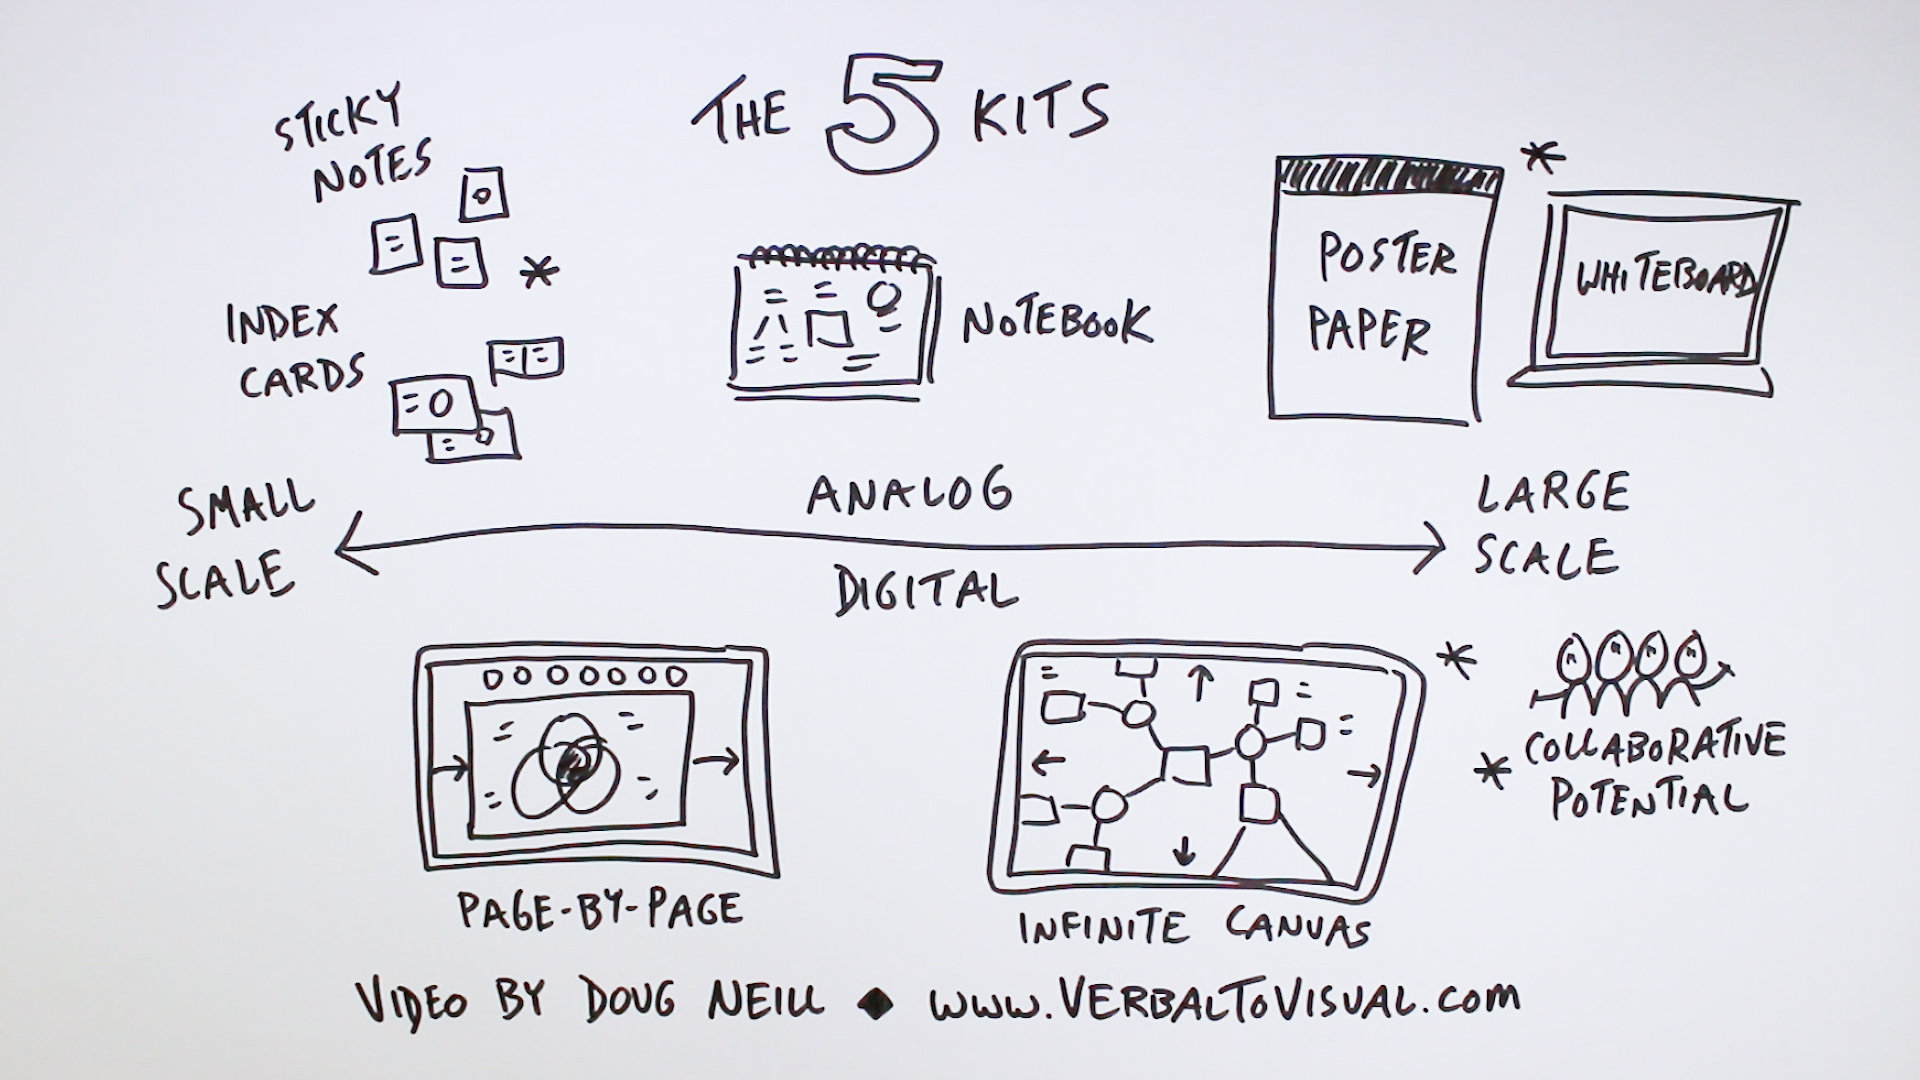 THE 5 KITS
STICKY
NOTES
*
INDEX
CARDS
NOTEBOOK
*
POSTER
PAPER
WHITEBOARD
SMALL
SCALE
ANALOG
DIGITAL
LARGE
SCALE
PAGE-BY-PAGE
INFINITE CANVAS
*
* COLLABORATIVE
POTENTIAL
VIDEO BY DOUG NEILL ◆ WWW.VERBALTOVISUAL.COM